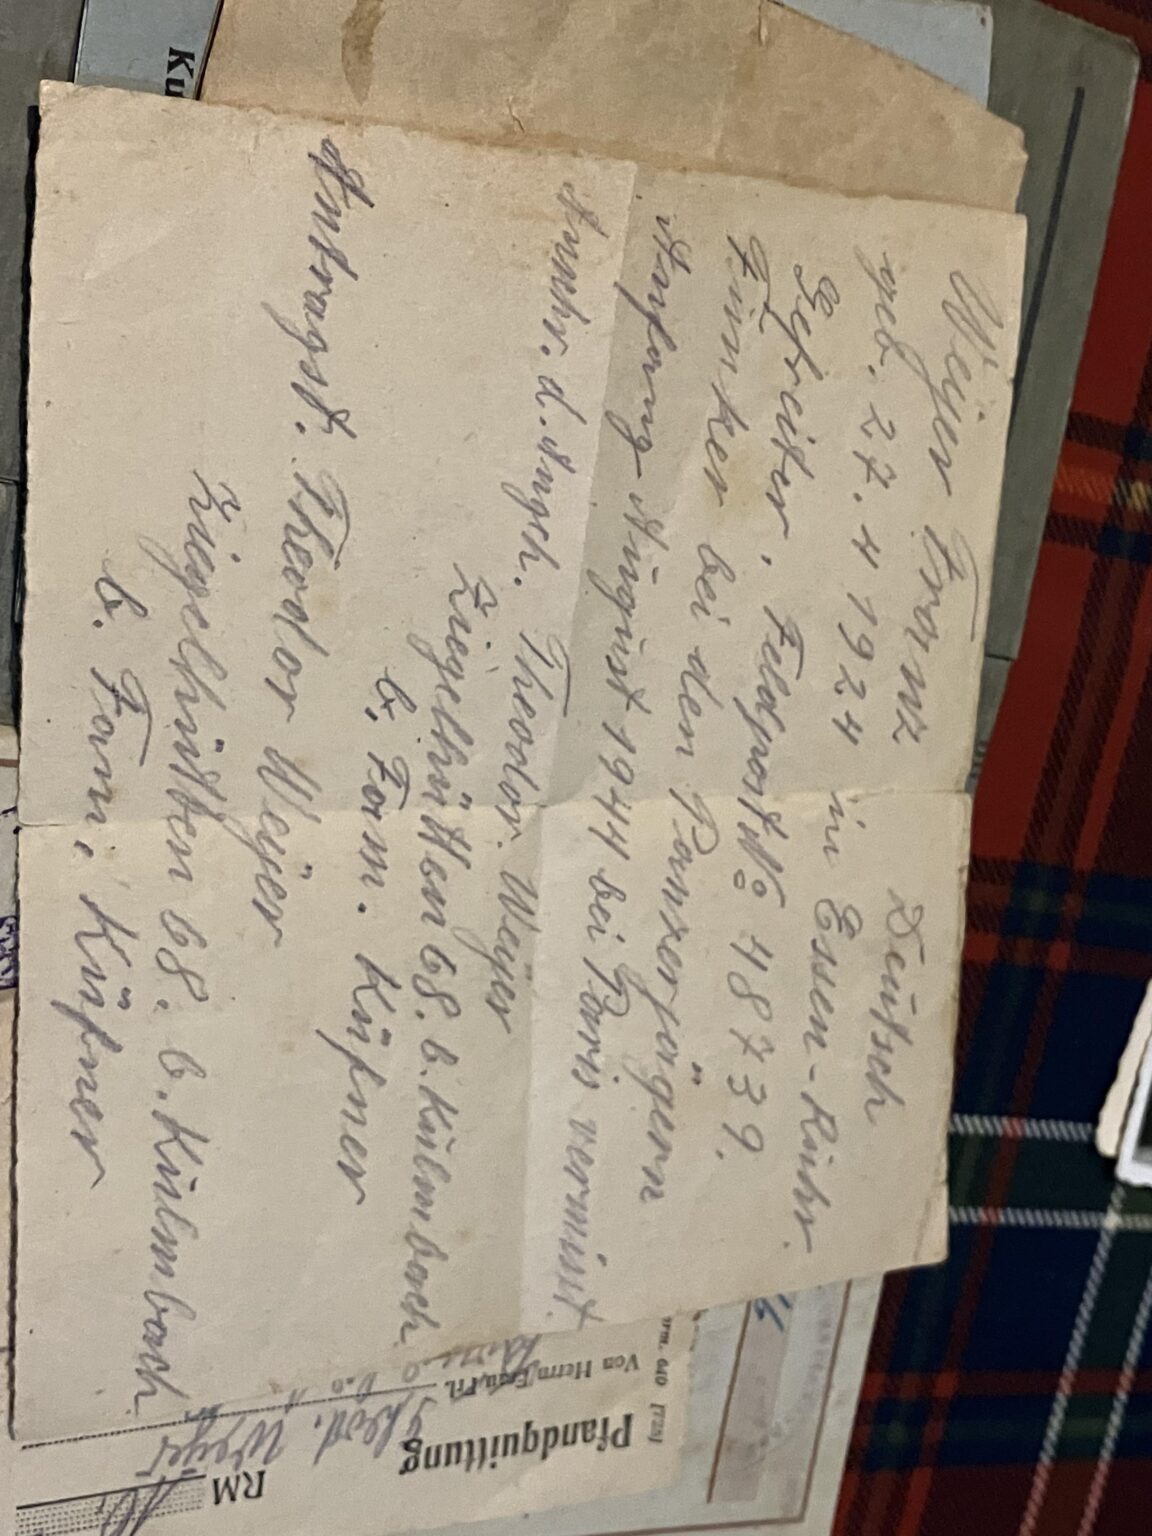 Weyer Franz Deutsch
geb. 27.4 1924 in Essen-Ruhr.
Gefreiter, Feldpost No 48739.
Funker bei den Panzerjägern
Anfang August 1944 bei Paris vermisst.
Anschr. d. Angeh. Theodor Weyer
Ziegelhütten 68. b. Kulmbach
b. Fam. Küfner
Antragst. Theodor Weyer
Ziegelhütten 68. b. Kulmbach
b. Fam. Küfner
Ku
Pfandquittung
RM
Von Herrn/Frau/Frl.
Theod. Weyer